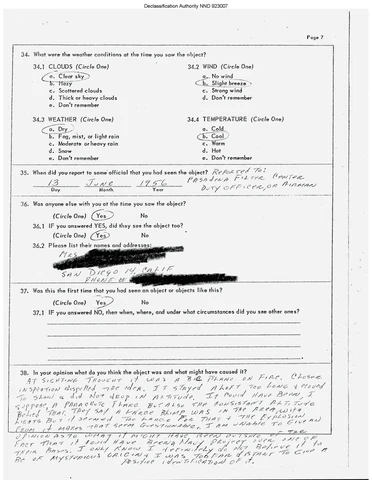 Declassification Authority NND 923007
Page 7
34. What were the weather conditions at the time you saw the object?
34.1 CLOUDS (Circle One)
a. Clear sky
b. Hazy
c. Scattered clouds
d. Thick or heavy clouds
e. Don't remember
34.2 WIND (Circle One)
a. No wind
b. Slight breeze
c. Strong wind
d. Don't remember
34.3 WEATHER (Circle One)
a. Dry
b. Fog, mist, or light rain
c. Moderate or heavy rain
d. Snow
e. Don't remember
34.4 TEMPERATURE (Circle One)
a. Cold
b. Cool
c. Warm
d. Hot
e. Don't remember
35. When did you report to some official that you had seen the object? REPORTED TO:
PASADENA FILTER CENTER
13 JUNE 1956 DUTY OFFICER, OR AIRMAN
Day Month Year
36. Was anyone else with you at the time you saw the object?
(Circle One) Yes No
36.1 IF you answered YES, did they see the object too?
(Circle One) Yes No
36.2 Please list their names and addresses:
MRS
SAN DIEGO 14, CALIF
PHONE #
37. Was this the first time that you had seen an object or objects like this?
(Circle One) Yes No
37.1 IF you answered NO, then when, where, and under what circumstances did you see other ones?
38. In your opinion what do you think the object was and what might have caused it?
AT SIGHTING THOUGHT IT WAS A PLANE ON FIRE, CLOSER
INSPECTION THE IDEA, IT STAYED ALOFT TOO LONG & MOVED
TO SLOW & DID NOT DROP IN ALTITUDE, IT COULD HAVE BEEN, I
SUPPOSE A PARACHUTE FLARE BUT ALSO THE CONSISTANT ALTITUDE
BELIED THAT. THEY SAY A LARGE BLIMP WAS IN THE AREA WITH
LIGHTS BUT I SEEMED TOO LARGE FOR THAT & THE EXPLOSION
FROM IT MAKES THAT SEEM QUESTIONABLE, I AM UNABLE TO GIVE AN
OPINION AS TO WHAT IT MIGHT HAVE BEEN OUTSIDE OF THE
FACT THAT IT COULD HAVE BEEN A NAVY PROJECT OVER ONE OF
THEIR BASES. I ONLY KNOW I DEFINITELY DO NOT BELIEVE IT TO
BE OF MYSTERIOUS ORIGIN & I WAS TOO FAR DISTANT TO GIVE A
POSITIVE IDENTIFICATION OF IT.